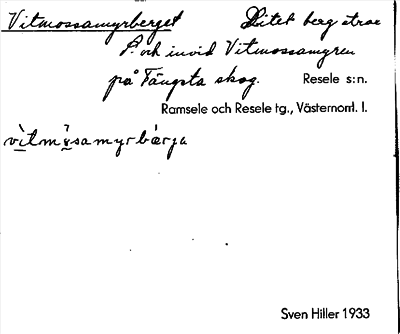 Vitmossamyrberget Litet berg strax
N. och invid Vitmossamyren
på Tängsta skog. Resele s:n.
Ramsele och Resele tg., Västernorrl. l.
vìtmǫ̀samyrbærja
Sven Hiller 1933